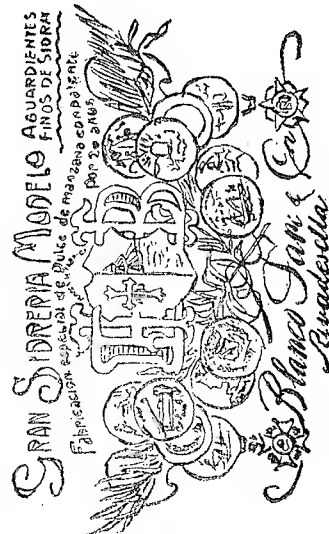 GRAN SIDRERIA MODELO
AGUARDIENTES
FINOS DE SIDRA
Fabricacion especial de Dulce de manzana con patente
por 20 años
B
Blanco
& Cia
Rivadesella